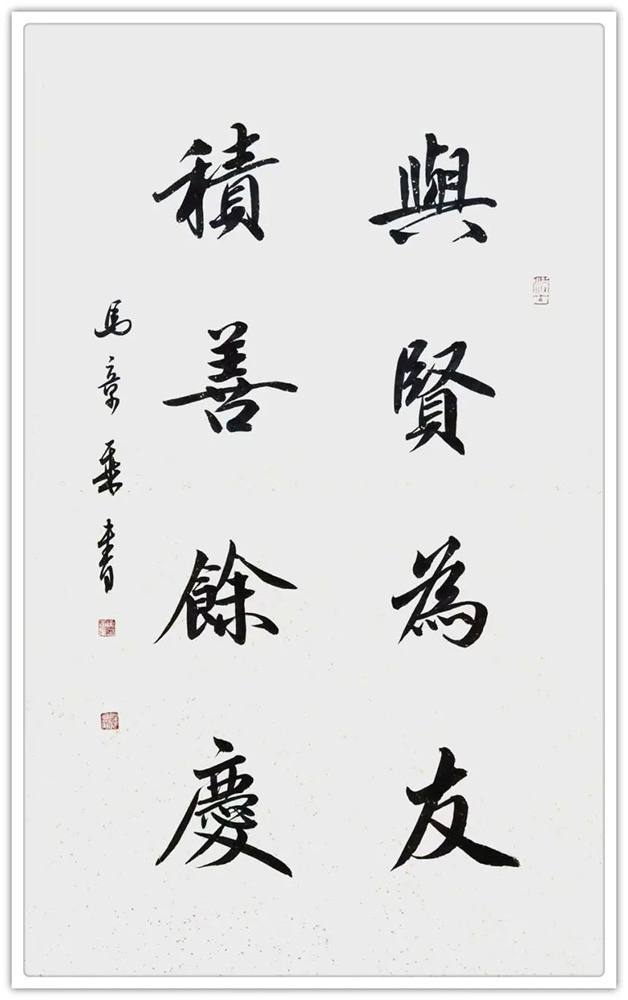 與賢為友
積善餘慶
馬章乘書